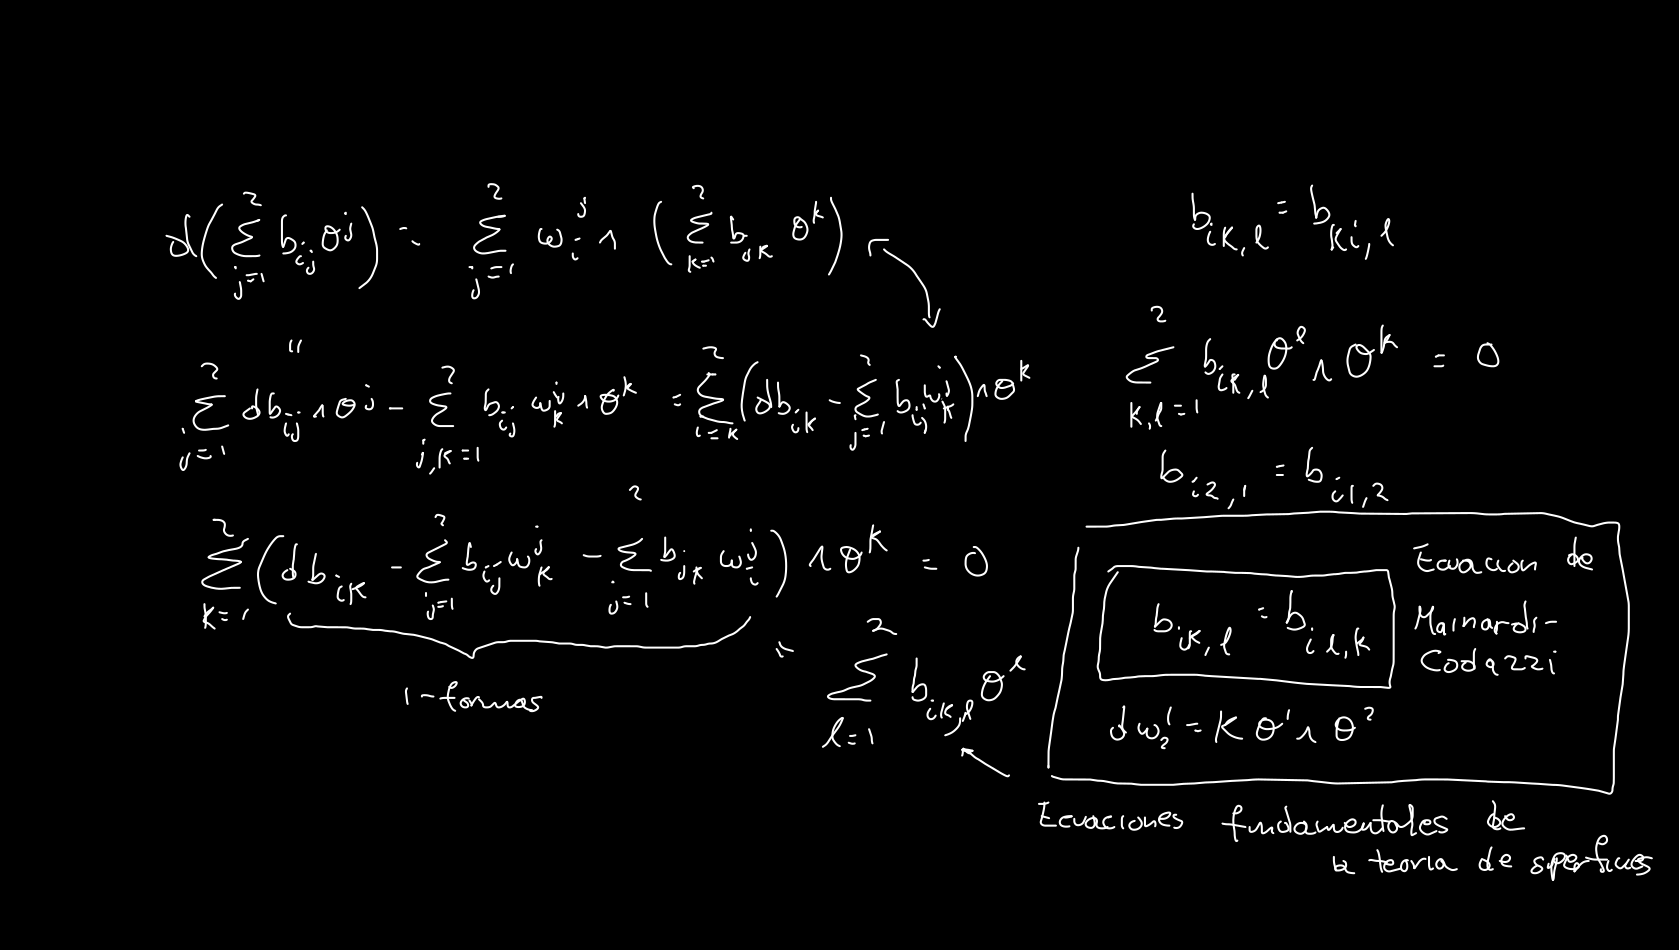 d(∑_{j=1}^{2} b_{ij} θ^j) = ∑_{j=1}^{2} ω_i^j ∧ (∑_{k=1}^{2} b_{jk} θ^k)
"
∑_{j=1}^{2} db_{ij} ∧ θ^j - ∑_{j,k=1}^{2} b_{ij} ω_k^j ∧ θ^k = ∑_{i=k}^{2} (db_{ik} - ∑_{j=1}^{2} b_{ij} ω_k^j) ∧ θ^k
∑_{k=1}^{2} (db_{ik} - ∑_{j=1}^{2} b_{ij} ω_k^j - ∑_{j=1}^{2} b_{jk} ω_i^j) ∧ θ^k = 0
1-formas
= ∑_{l=1}^{2} b_{ik,l} θ^l
b_{ik,l} = b_{ki,l}
∑_{k,l=1}^{2} b_{ik,l} θ^l ∧ θ^k = 0
b_{i2,1} = b_{i1,2}
b_{ik,l} = b_{il,k}
Ecuacion de
Mainardi-
Codazzi
dω_2^1 = K θ^1 ∧ θ^2
Ecuaciones fundamentales de
la teoria de superficies